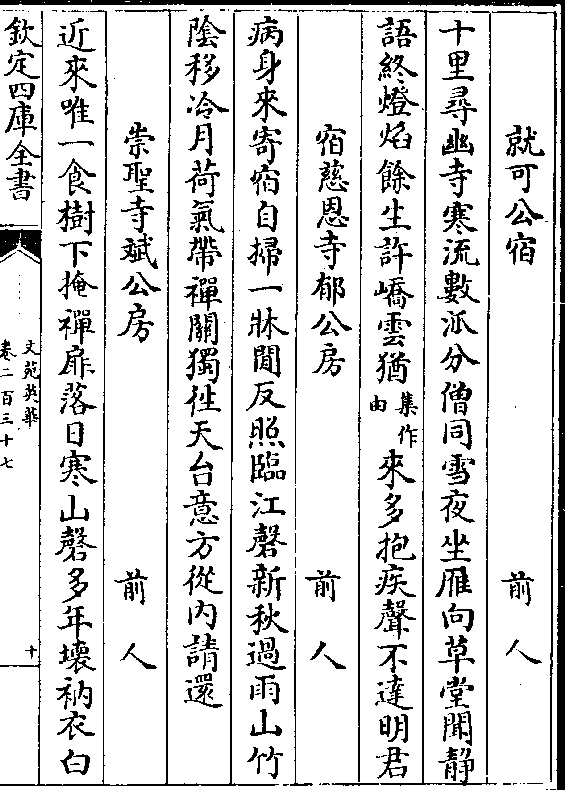 就可公宿　前人
十里尋幽寺寒流數派分僧同雪夜坐雁向草堂聞静
語終燈焰餘生許嶠雲猶集作由來多抱疾聲不達明君
宿慈恩寺郁公房　前人
病身來寄宿自掃一牀閒反照臨江磬新秋過雨山竹
陰移冷月荷氣帶禪關獨徃天台意方從内請還
崇聖寺斌公房　前人
近來唯一食樹下掩禪扉落日寒山磬多年壞衲衣白
欽定四庫全書
文苑英華
卷二百三十七
十